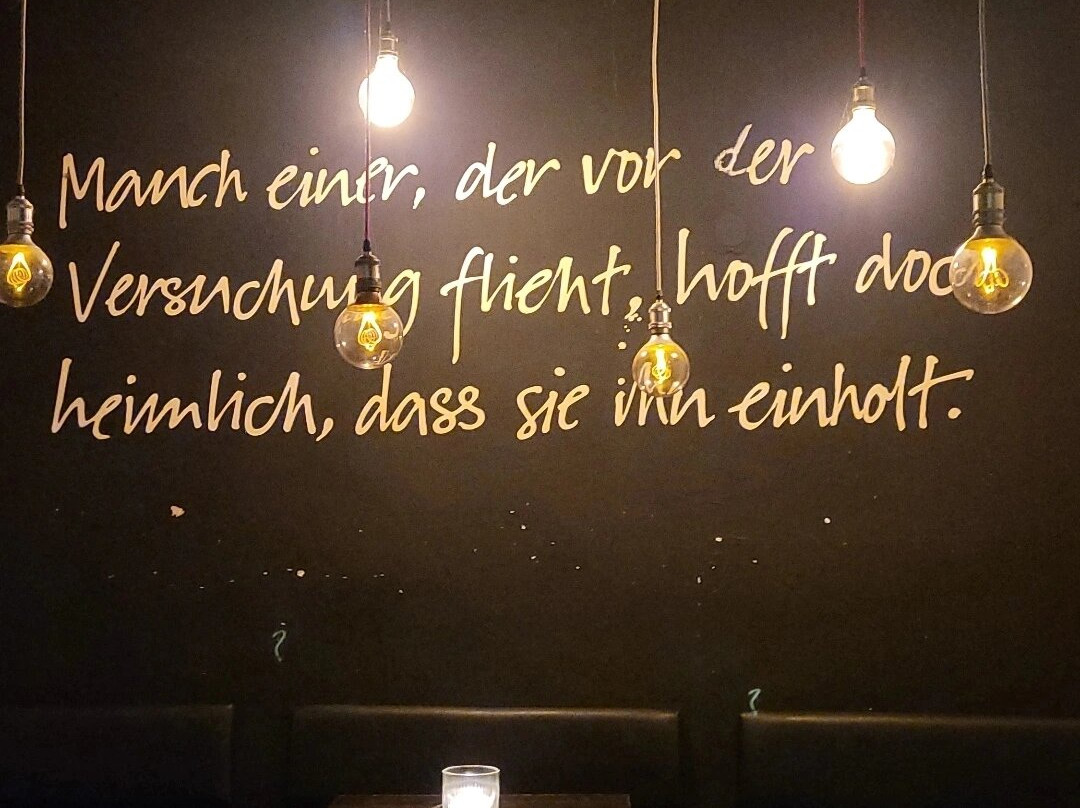 Manch einer, der vor der
Versuchung flieht, hofft doch
heimlich, dass sie ihn einholt.
?
?